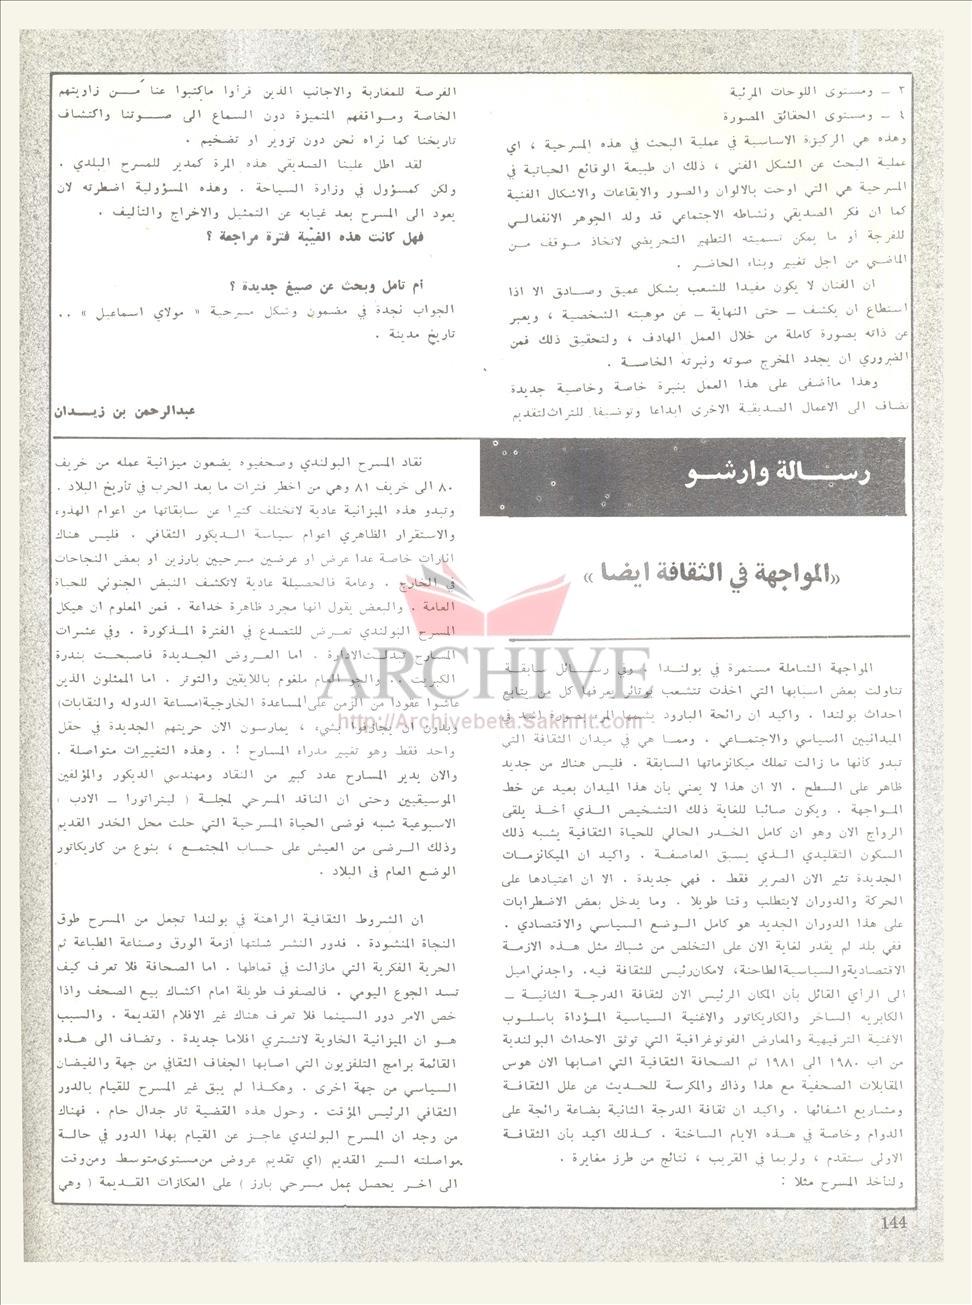 ٣ ــ ومستوى اللوحات المرئية
٤ ــ ومستوى الحقائق المصورة
وهذه هي الركيزة الاساسية في عملية البحث في هذه المسرحية ، اي
عملية البحث عن الشكل الفني ، ذلك ان طبيعة الوقائع الحياتية في
المسرحية هي التي اوحت بالالوان والصور والايقاعات والاشكال الفنية
كما ان فكر الصديقي ونشاطه الاجتماعي قد ولد الجوهر الانفعالــي
للفرجة أو ما يمكن تسميته التطهير التحريضي لاتخاذ مـوقف مــن
الماضـي من اجل تغيير وبناء الحاضـر .
ان الفنان لا يكون مفيدا للشعب بشكل عميق وصــادق الا اذا
استطاع ان يكشف ــ حتى النهاية ــ عن موهبته الشخصية ، ويعبر
عن ذاته بصورة كاملة من خلال العمل الهادف ، ولتحقيق ذلك فمن
الضروري ان يجدد المخرج صوته ونبرته الخاصــة .
وهذا ماأضفى على هذا العمل بنبرة خاصة وخاصية جديدة
تضاف الى الاعمال الصديقية الاخرى ابداعا وتوضيفا للتراث لتقديم
الفرصة للمغاربة والاجانب الذين قرأوا ماكتبوا عنا مــن زاويتهم
الخاصة ومـواقفهم المتميزة دون السماع الى صــوتنا واكتشاف
تاريخنا كما نراه نحن دون تزوير او تضخيم .
لقد اطل علينا الصديقي هذه المرة كمدير للمسرح البلدي .
ولكن كمسؤول في وزارة السياحة . وهذه المسؤولية اضطرته لان
يعود الى المسرح بعد غيابه عن التمثيل والاخراج والتأليف .
فهل كانت هذه الغيبة فترة مراجعة ؟
أم تامل وبحث عن صيغ جديدة ؟
الجواب نجدة في مضمون وشكل مسرحية « مولاي اسماعيل » ..
تاريخ مدينة .
عبدالرحمن بن زيــدان
رســالة وارشــو
«المواجهة في الثقافة ايضا »
المواجهة الشاملة مستمرة في بولنـدا . وفي رسـائل سابقــة
تناولت بعض اسبابها التي اخذت تتشعب يعرفها كل من يتابع
احداث بولندا . واكيد ان رائحة البارود
الميدانيين السياسي والاجتمـاعي . وممـا هي في ميدان الثقافة التي
تبدو كأنها ما زالت تملك ميكانزماتها السابقة . فليس هناك من جديد
ظاهر على السطح . الا ان هذا لا يعني بأن هذا الميدان بعيد عن خط
المـواجهة . ويكون صائبا للغاية ذلك التشخيص الـذي أخـذ يلقى
الرواج الان وهو ان كامل الخـدر الحالي للحياة الثقافية يشبه ذلك
السكون التقليدي الـذي يسبق العاصفـة . واكيد ان الميكانزمـات
الجديدة تثير الان الصرير فقط . فهي جديدة . الا ان اعتيادها على
الحركة والدوران لايتطلب وقتا طويلا . وما يدخل بعض الاضطرابات
على هذا الدوران الجديد هو كامل الـوضع السياسي والاقتصادي .
ففي بلد لم يقدر لغاية الان على التخلص من شباك مثل هـذه الازمـة
الاقتصادية والسياسية الطاحنة، لامكان رئيس للثقافة فيه. واجدني اميل
الى الرأي القائل بأن المكان الرئيس الان لثقافة الدرجـة الثانيـة ــ
الكابريه الساخر والكاريكاتور والاغنية السياسية المـؤداة باسلـوب
الاغنية الترفيهية والمعارض الفوتوغرافية التي توثق الاحداث البولندية
من اب ١٩٨٠ الى ١٩٨١ ثم الصحافة الثقافية التي اصابها الان هوس
المقابلات الصحفية مع هذا وذاك والمكرسة للحديث عن علل الثقافـة
ومشاريع اشفائها . واكيد ان ثقافة الدرجة الثانية بضاعة رائجة على
الدوام وخاصة في هـذه الايام الساخنة . كـذلك اكيد بأن الثقافـة
الاولى ستقدم ، ولربما في القريب ، نتائج من طرز مغايرة .
ولنأخذ المسرح مثلا :
نقاد المسرح البولندي وصحفيوه يضعون ميزانية عمله من خريف
٨٠ الى خريف ٨١ وهي من اخطر فترات ما بعد الحرب في تأريخ البلاد .
وتبدو هذه الميزانية عادية لاتختلف كثيرا عن سابقاتها من اعوام الهدوء
والاستقرار الظاهري اعوام سياسة الـديكور الثقافي . فليس هناك
اثارات خاصة عدا عرض او عرضين مسرحيين بارزين او بعض النجاحات
في الخارج . وعامة فالحصيلة عادية لاتكشف النبض الجنوني للحياة
العامة . والبعض يقول انها مجرد ظاهرة خداعة . فمن المعلوم ان هيكل
المسرح البولندي تعـرض للتصدع في الفترة المـذكورة . وفي عشـرات
المسارح تبدلت الادارة . اما العـروض الجـديدة فاصبحـت بندرة
الكبريت .. والجو العام ملغوم باللايقين والتوتر . اما الممثلون الذين
عاشوا عقودا من الزمن على المساعدة الخارجية (مساعدة الدوله والنقابات)
ودون ان يجازفوا بشيء ، يمارسون الان حريتهم الجديدة في حقل
واحد فقط وهو تغيير مدراء المسارح ! . وهذه التغييرات متواصلة .
والان يدير المسارح عدد كبير من النقاد ومهندسي الديكور والمؤلفين
الموسيقيين وحتى ان الناقد المسرحي لمجلـة ( ليتراتورا ــ الادب )
الاسبوعية شبه فوضى الحياة المسرحية التي حلت محل الخدر القديم
وذلك الـرضى من العيش على حساب المجتمـع ، بنوع من كاريكاتور
الوضع العام فى البلاد .
ان الشروط الثقافية الراهنة في بولندا تجعل من المسرح طوق
النجاة المنشودة . فدور النشر شلتها ازمة الورق وصناعة الطباعة ثم
الحرية الفكرية التي مازالت في قماطها . اما الصحافة فلا تعرف كيف
تسد الجوع اليومي . فالصفوف طويلة امام اكشاك بيع الصحف واذا
خص الامر دور السينما فلا تعرف هناك غير الافلام القديمة . والسبب
هـو ان الميزانية الخاوية لاتشتري افلاما جديدة . وتضاف الى هـذه
القائمة برامج التلفزيون التي اصابها الجفاف الثقافي من جهة والفيضان
السياسي من جهة اخرى . وهكـذا لم يبق غير المسرح للقيام بالدور
الثقافي الرئيس المؤقت . وحول هذه القضية ثار جدال حام . فهناك
من وجد ان المسرح البولندي عاجـز عن القيام بهذا الدور في حالـة
مواصلته السير القديم (اي تقديم عروض من مستوى متوسط ومن وقت
الى اخـر يحصل عمل مسرحي بارز ) على العكازات القـديمة ( وهي
ARCHIVE
http://Archivebeta.Sakhrit.com
144